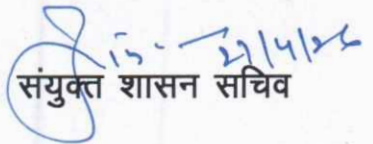 27/4/26
संयुक्त शासन सचिव